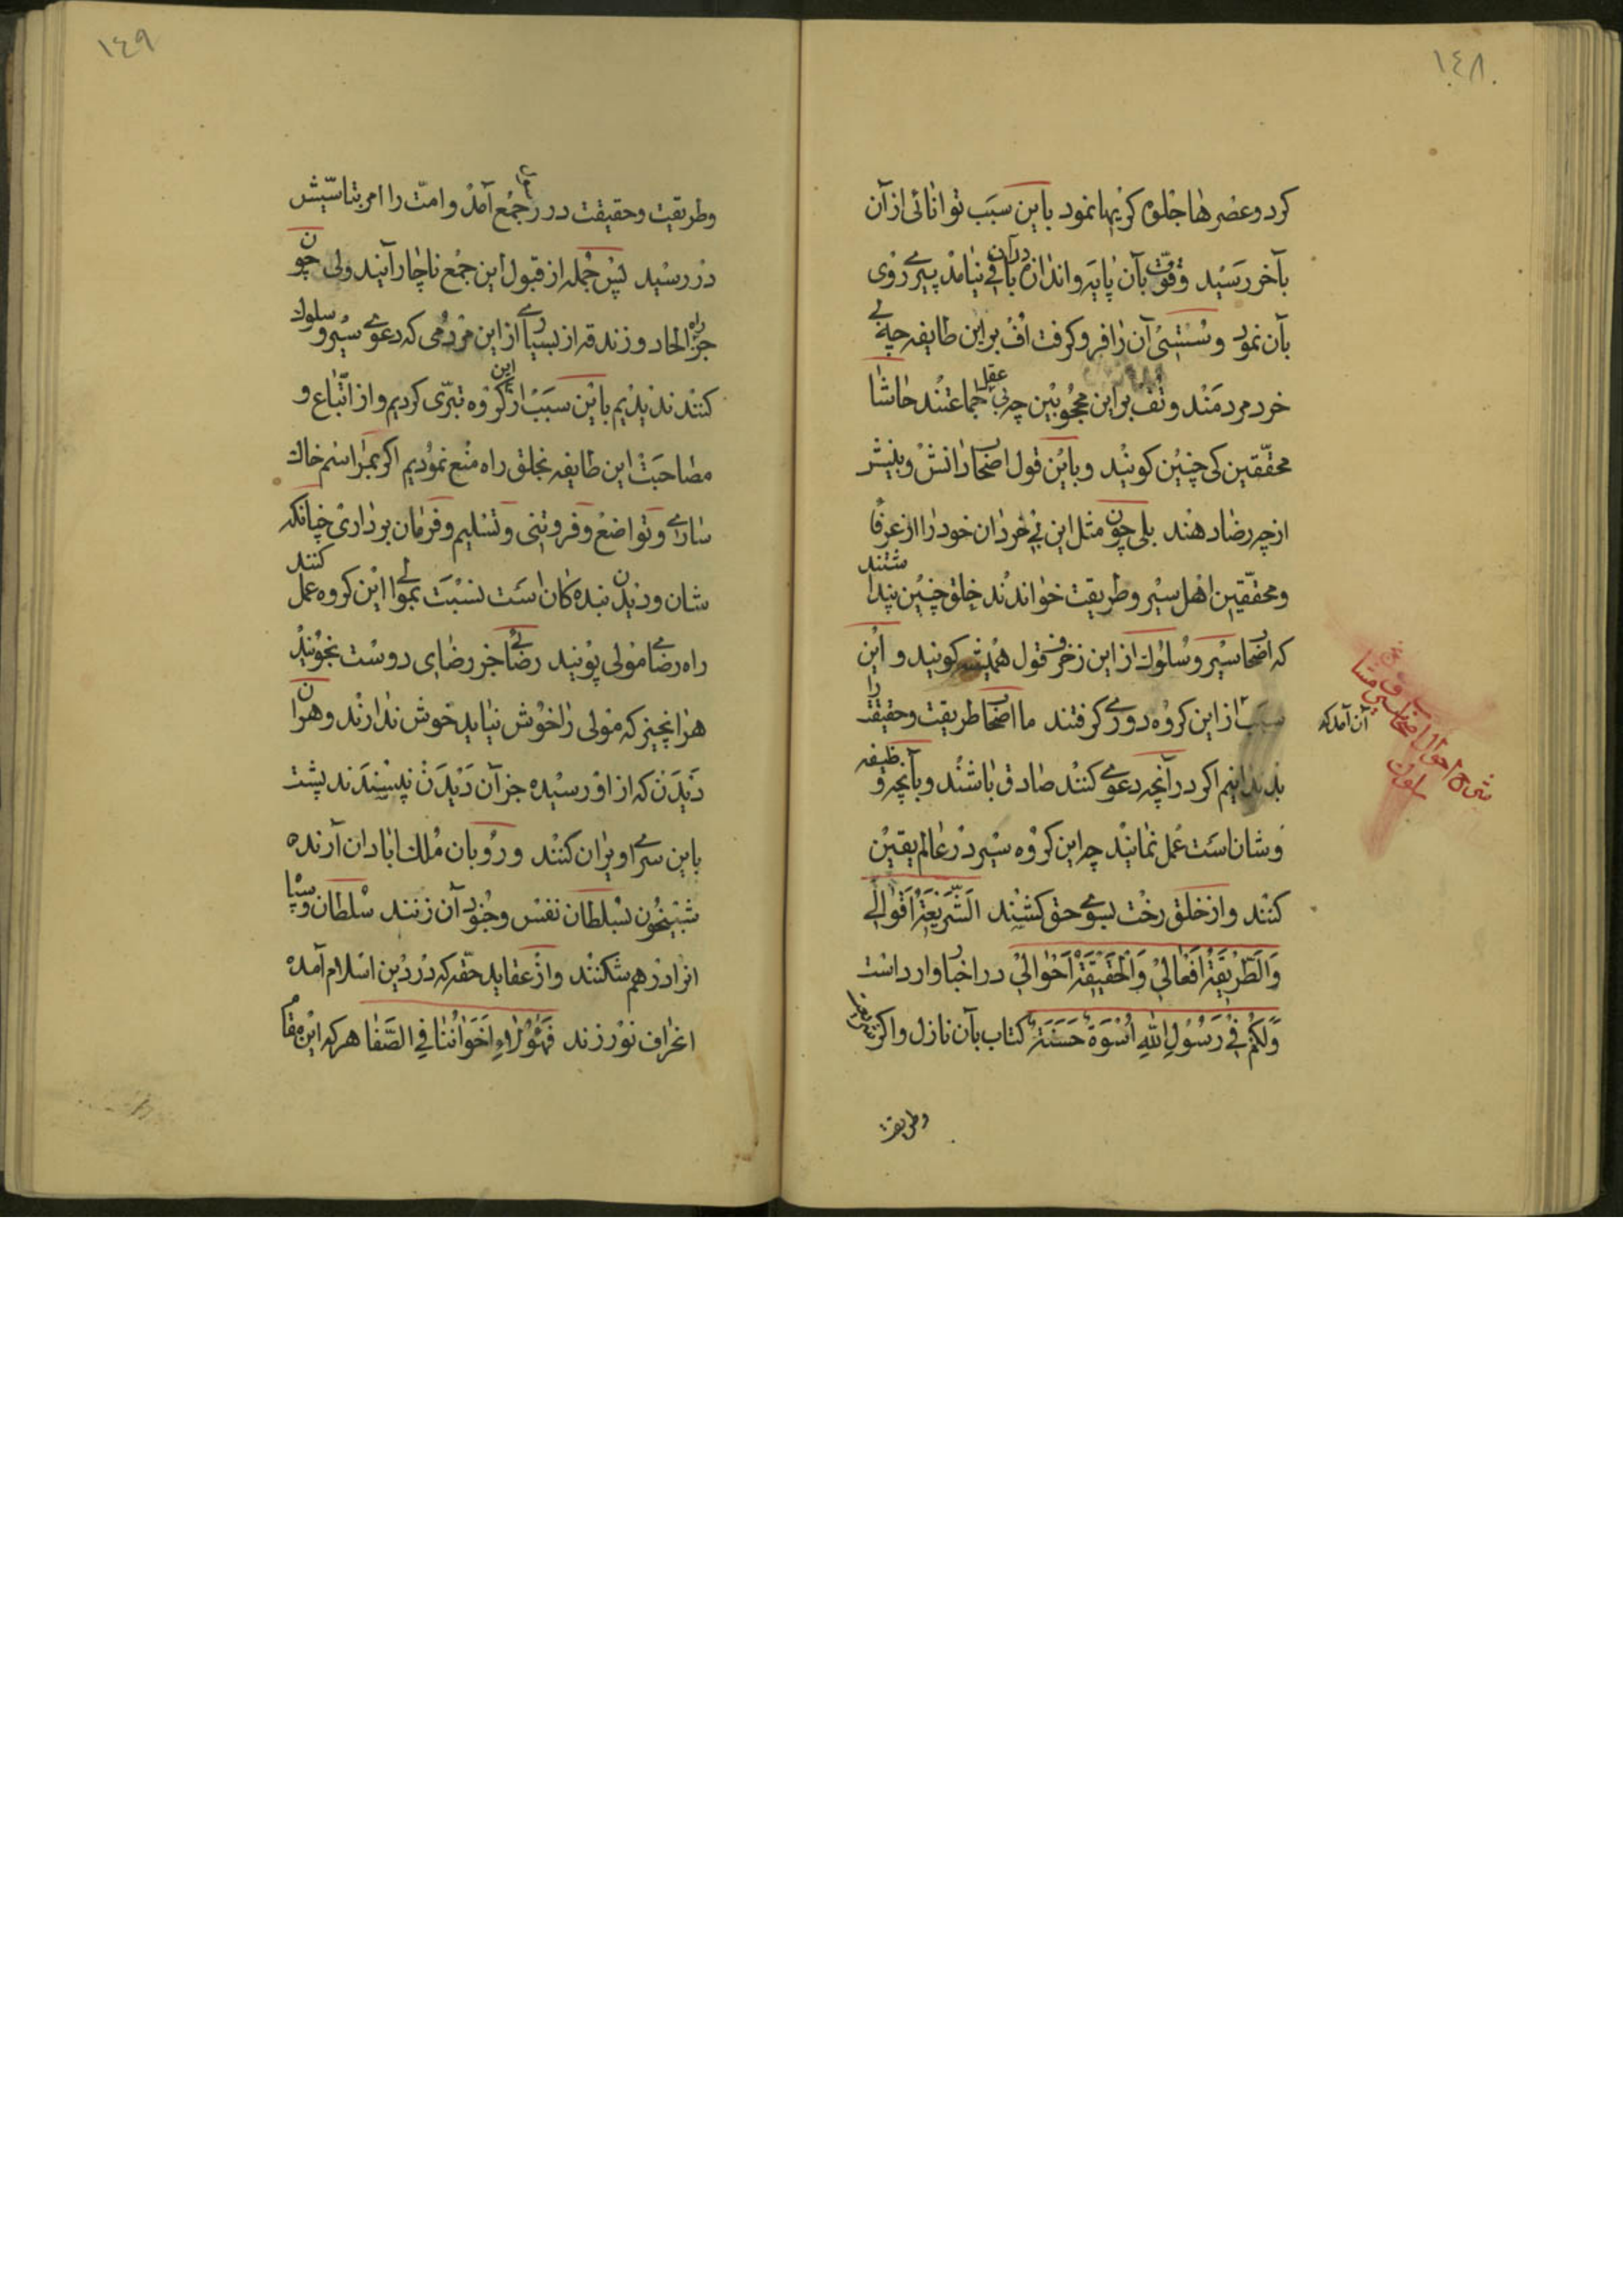 ١٤٨
کرد و عضرها جلوه کریهانمود باین سبب توانائی از آن
بآخر رسید وقوّت بآن پایه و اندازه در آن باقی نیامد پیری روی
بآن نمود و سستی آن را فرو کرفت اُفّ براین طایفه چه بی
خرد مردمند و تف براین محجوبین چه بی عقل جماعتند حاشا
محقّقین کی چنین کویند و باین قول اصحاب دانش و بینش
از چه رضا دهند بلی چون مثل این بی خردان خود را از عرفا
و محقّقین اهل سیر و طریقت خواندند خلق چنین پنداشتند
که اصحاب سیر و سلوک از این زخرف قول همیشه کویند و این
سبب از این کروه دوری کرفتند ما اصحاب طریقت و حقیقت را
آن آمد که
شرح احوال اصحاب
سلوک
بد ندانیم اکر در آنچه دعوی کنند صادق باشند و بآنچه وظیفه
وشان است عمل نمایند چه این کروه سیر در عالم یقین
کنند و از خلق رخت بسوی حق کشند اَلشَّریعَةُ اَقْوالی
وَالطَّریقَةُ اَفْعالی وَالْحَقیقَةُ اَحْوالی در اخبار وارد است
وَلَکُمْ فی رَسُولِ اللهِ اُسْوَةٌ حَسَنَةٌ کتاب بآن نازل و اکر شریعت
وطریقة
١٤٩
وطریقت و حقیقت در او جمع آمد و امّت را امر بتاسّیش
در رسید پس جمله از قبول این جمع ناچار آیند ولی چون
جز راه الحاد و زندقه از بسیاری از این مردمی که دعوی سیر و سلوک
کنند ندیدیم باین سبب از این کروه تبرّی کردیم و از اتّباع و
مصاحبت این طایفه بخلق راه منع نمودیم اکر بمراسم خاک
ساری و تواضع و فروتنی و تسلیم و فرمان برداری چنانکه
شان و دیدن بنده کان است نسبت بمولی این کروه عمل کنند
راه رضای مولی پویند رضائی جز رضای دوست نجویند
هر انچیز که مولی را خوش نیاید خوش ندارند و هر ان
دیدن که از او رسیده جز آن دیدن نپسندند پشت
باین سرای ویران کنند و رو بان ملک ابادان آرنده
شبیخون بسلطان نفس و جنود آن زنند سلطان و سپاه
انرا در هم شکنند و از عقاید حقّه که در دین اسلام آمده
انحراف نورزند فَهٰؤُلاءِ اِخْوانُنا فی الصَّفا هر که این مقام